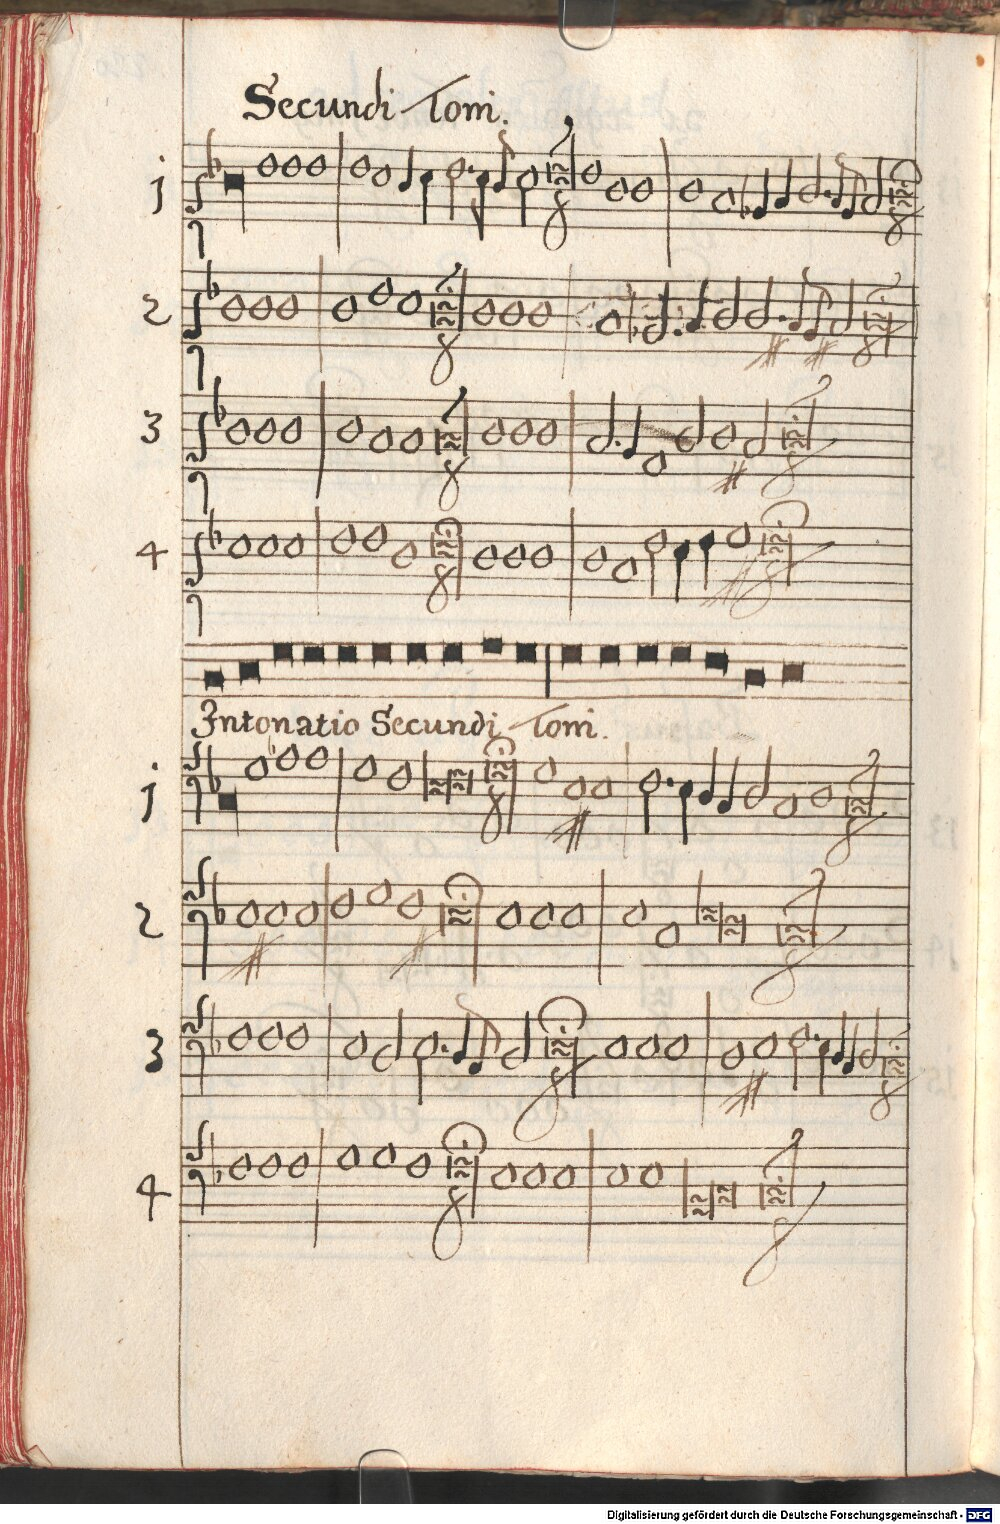 Secundi Toni.
1
2
3
4
Intonatio Secundi Toni.
1
2
3
4
Digitalisierung gefördert durch die Deutsche Forschungsgemeinschaft - DFG